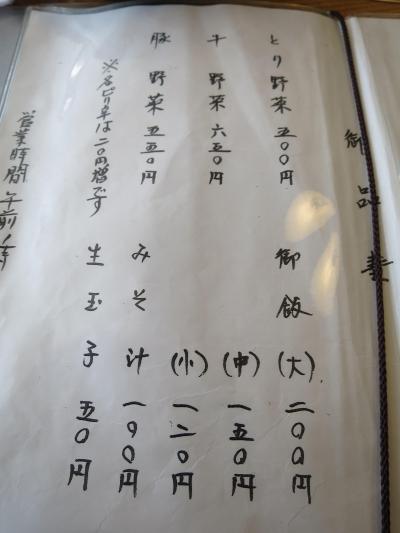 御品書
とり野菜 五〇〇円
牛野菜 六五〇円
豚野菜 五五〇円
※各ピリ辛は二〇円増です
営業時間 午前
御飯(大)二〇〇円
(中)一五〇円
(小)一二〇円
みそ汁 一〇〇円
生玉子 五〇円